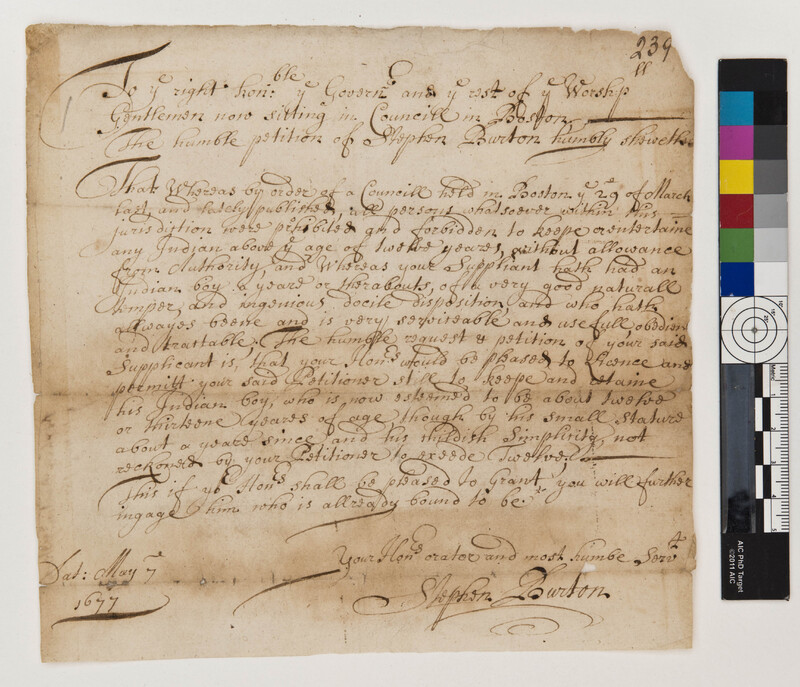 239
To ye right honble: ye Governr and ye rest of ye Worshpll
Gentlemen now sitting in Councill in Boston
The humble petition of Stephen Burton humbly sheweth
That Whereas by order of a Councill held in Boston ye 29 of March
last, and lately published, all persons whatsoever within this
jurisdiction were prohibited and forbidden to keepe or entertaine
any Indian above ye age of twelve yeares, without allowance
from Authority, and Whereas your Suppliant hath had an
Indian boy a yeare or therabouts, of a very good naturall
temper, and ingenious docile disposition, and who hath
allwayes beene and is very serviceable and usefull obedient
and tractable, The humble request & petition of your said
Supplicant is, that your Honrs would be pleased to licence and
permitt your said Petitioner still to keepe and retaine
his Indian boy, who is now esteemed to be about twelve
or thirteene yeares of age, though by his small stature
about a yeare since, and his childish simplicity, not
reckoned by your Petitioner to exceede Twelve,
This if yor Honrs shall be pleased to Grant, you will further
ingage him who is allready bound to be
Your Honrs orator and most humbe Servt
Dat: May ye 7
1677
Stephen Burton
Metric
AIC PhD Target
©2011 AIC